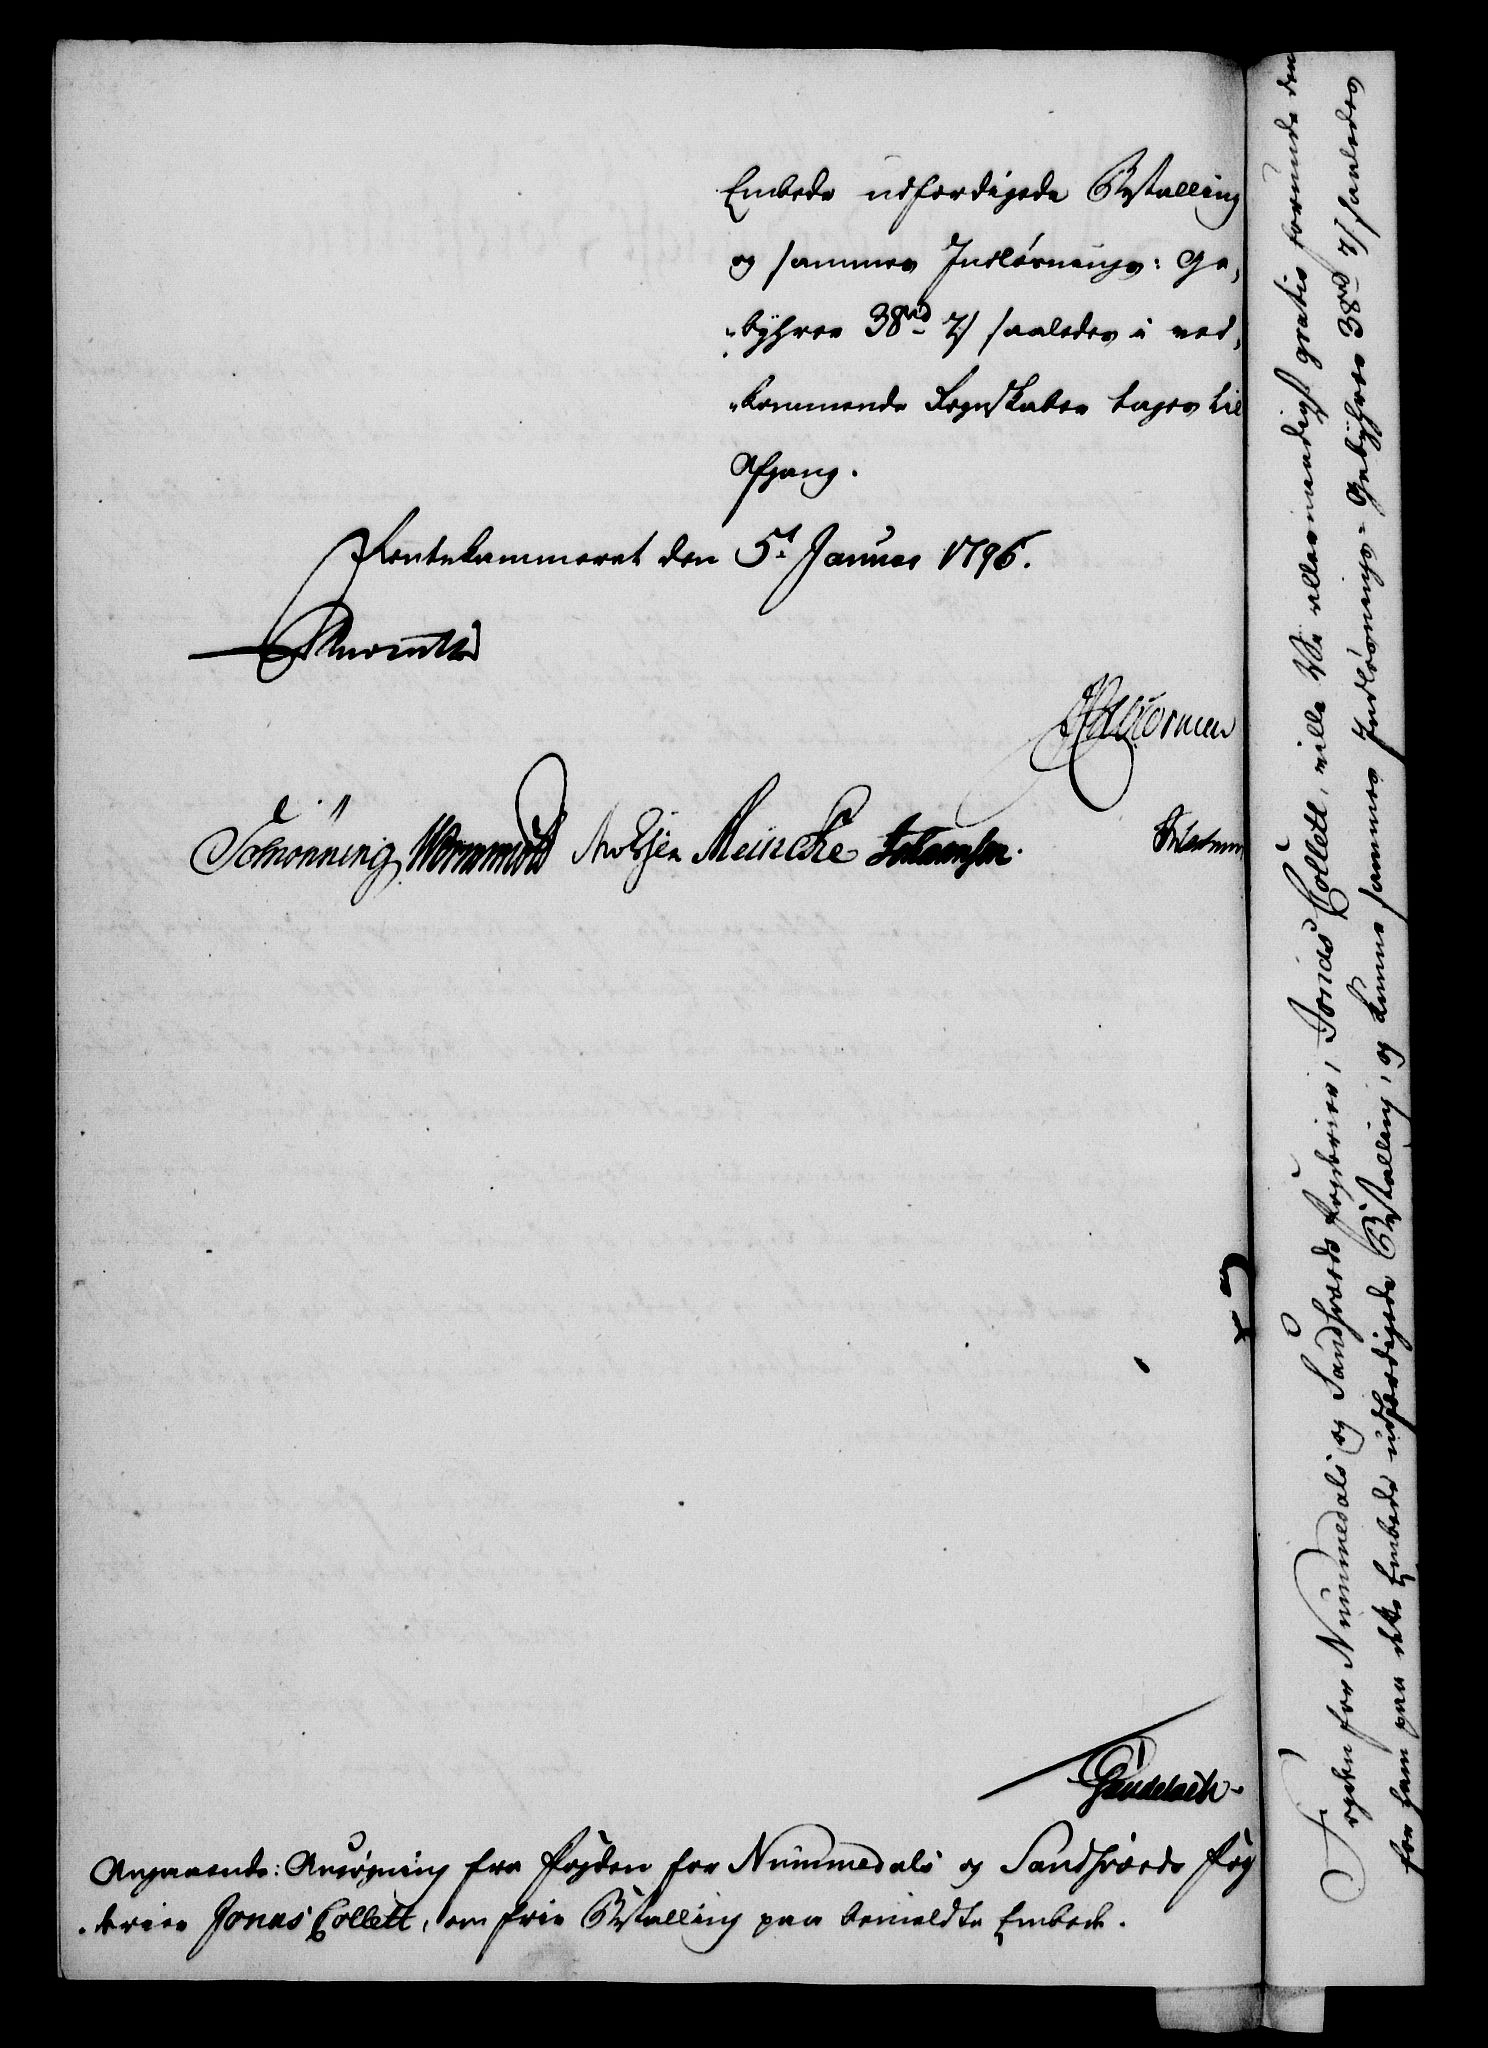 Embede udfærdigede Bestalling
og sammes Indløsnings: Ge„
„byhrer 38rd 7ß saaledes i ved„
„kommende Regnskaber tages til
Afgang.
Rentekammeret den 5t Januar 1796.
Schiønning Wormskiold Meincke
Angaaende: Ansøgning fra Fogden for Nummedals og Sandsværds Fog
„derier Jonas Collett, om frie Bestalling paa bemeldte Embede.
Fogden for Nummedals og Sandsværds Fogderier, Jonas Collett, ville Vi allernaadigst gratis forunde den
for ham paa dette Embede udfærdigede Bestalling, og kunne sammes Indløsnings-Gebyhrer 38rd 7ß saaledes